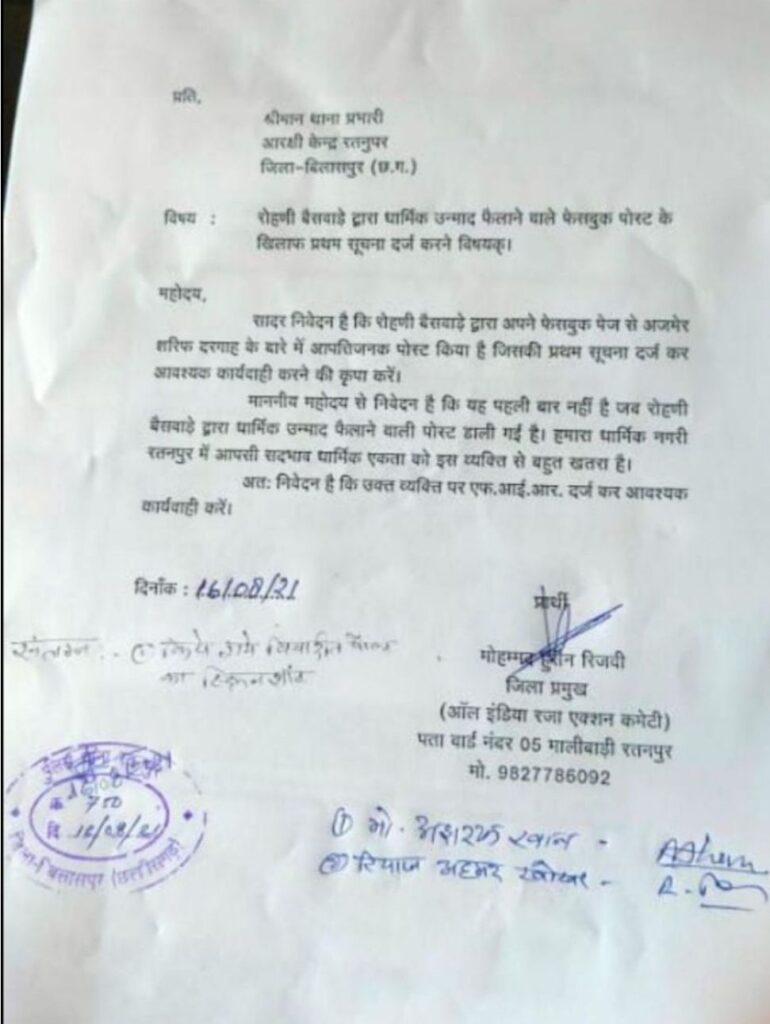 प्रति,
श्रीमान थाना प्रभारी
आरक्षी केन्द्र रतनुपर
जिला-बिलासपुर (छ.ग.)
विषय : रोहणी बैसवाडे द्वारा धार्मिक उन्माद फैलाने वाले फेसबुक पोस्ट के
खिलाफ प्रथम सूचना दर्ज करने विषयक्।
महोदय,
सादर निवेदन है कि रोहणी बैसवाडे़ द्वारा अपने फेसबुक पेज से अजमेर
शरिफ दरगाह के बारे में आपतिजनक पोस्ट किया है जिसकी प्रथम सूचना दर्ज कर
आवश्यक कार्यवाही करने की कृपा करें।
माननीय महोदय से निवेदन है कि यह पहली बार नहीं है जब रोहणी
बैसवाडे़ द्वारा धार्मिक उन्माद फैलाने वाली पोस्ट डाली गई है। हमारा धार्मिक नगरी
रतनपुर में आपसी सदभाव धार्मिक एकता को इस व्यक्ति से बहुत खतरा है।
अतः निवेदन है कि उक्त व्यक्ति पर एफ.आई.आर. दर्ज कर आवश्यक
कार्यवाही करें।
दिनाँक : 16/08/21
प्रार्थी
संलग्न :- किये गये
का
मोहम्मद रिजवी
जिला प्रमुख
(ऑल इंडिया रजा एक्शन कमेटी)
पता वार्ड नंबर 05 मालीबाड़ी रतनपुर
मो. 9827786092
750
दि 16/08/21
जिला-बिलासपुर (छत्तीसगढ़)
① मो. अशरफ खान -
② रियाज अहमद खोखर -